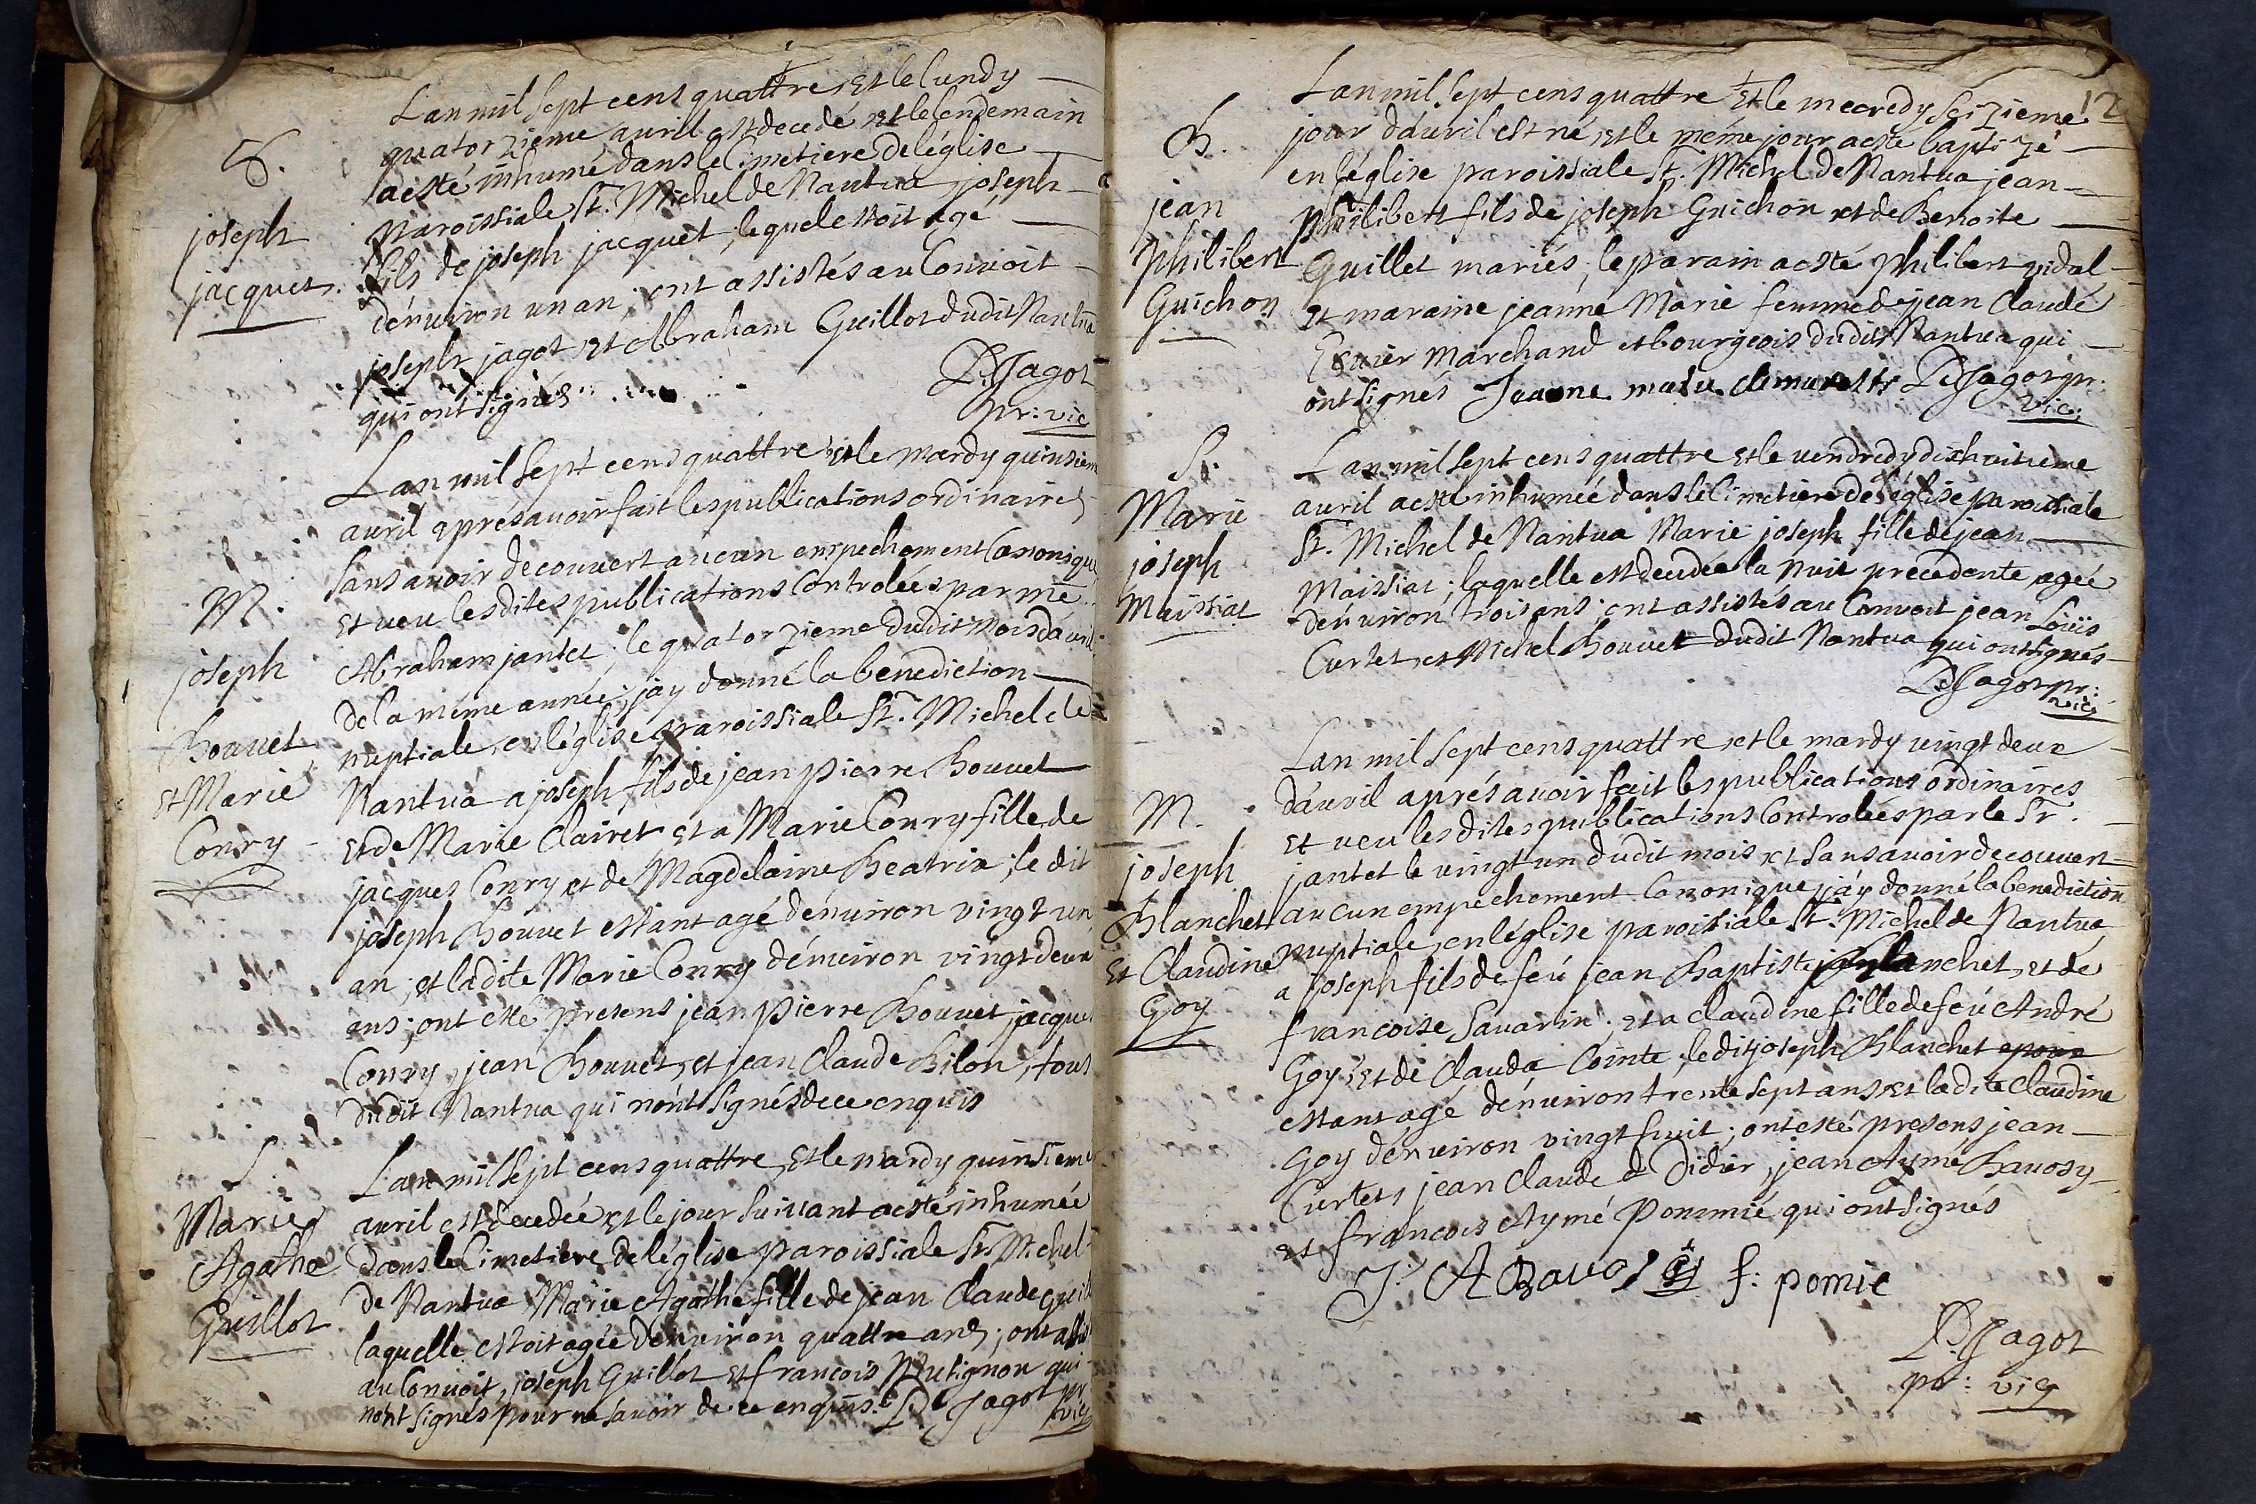 S.
joseph
jacquet.
Lan mil sept cens quattre, et le lundy
quatorzieme auril est decedé et le lendemain
acsté inhumé dans le Cimetiere de léglise
Paroissiale St. Michel de Nantua joseph
fils de joseph jacquet, lequel estoit agé
dénuiron un an; ont assistés au Conuoit
joseph jagot et Abraham Guillot dudit Nantua
qui ont signés
D. Jagot
pr: vic
M.
joseph
Bouuet
Et Marie
Conry
Lan mil sept cens quattre et le mardy quinsiem
auril aprés auoir fait les publications ordinaires
sans auoir decouuert aucun empechement Canonique
Et ueu lesdites publications Controleés par me.
Abraham jantet, le quatorzieme dudit mois dauril
de la méme année; jay donné la benediction
nuptiale, en léglise paroissiale St. Michel de
Nantua a joseph fils de jean pierre Bouuet
Et de Marie Clairet et a Marie Conry fille de
jacques Conry et de Magdelaine Beatrix; le dit
joseph Bouuet estant agé dénuiron vingt un
an; et ladite Marie Conry dénuiron vingt deux
ans; ont esté presens jean pierre Bouuet jacques
Conry, jean Bouuet, et jean Claude Bilon, tous
dudit Nantua qui nónt signés de ce enquis
S.
Marie
Agathe
Guillot
Lan mil sept cens quattre, et le mardy quinsieme
auril est decedeé et le jour suiuant acsté inhumée
dans le Cimetiere de léglise paroissiale St. Michel
de Nantua Marie Agathe fille de jean Claude Guill
laquelle estoit agée dénuiron quattre ans; ont assis
au Conuoit, joseph Guillot et francois Mutignon qui
nónt signés pour ne sauoir de ce enquis. D. Jagot pr
vic
12
B.
jean
philibert
Guichon
Lan mil sept cens quattre et le mecredy seizieme
jour dáuril est né, et le méme jour acsté baptizé
en léglise paroissiale St. Michel de Nantua jean
philibert fils de joseph Guichon et de Benoite
Guillet mariés; le parain acsté philibert vidal
et maraine jeanne Marie femme de jean Claude
marchand et bourgeois dudit Nantua qui
ont signés Jeanne marie D. Jagot pr.
vic;
S.
Marie
joseph
Maissiat
Lan mil sept cens quattre et le uendredy dixhuitieme
auril acsté inhumeé dans le Cimetiere de léglise paroissiale
St. Michel de Nantua Marie joseph fille de jean
Maissiat; laquelle est decedée la nuit precedente, agée
dénuiron trois ans; ont assistés au Conuoit jean Loüis
Curtet, et Michel Bouuet dudit Nantua qui ont signés
D. Jagot pr:
vic,
M.
joseph
Blanchet
Et Claudine
Goy
Lan mil sept cens quattre, et le mardy uingt deux
dáuril aprés auoir fait les publications ordinaires
et ueu lesdites publications Controleés par le Sr.
jantet le uingt un dudit mois et sans auoir decouuert
aucun empechement Canonique, jáy donné la benediction
nuptiale, en léglise paroissiale St. Michel de Nantua
a joseph fils de feú jean Baptiste Blanchet, et de
francoise Sauarin; et a Claudine fille de feú André
Goy, et de Clauda Cointe, ledit joseph Blanchet
estant agé dénuiron trente sept ans et ladite Claudine
Goy dénuiron vingt huit; ont esté presens jean
Curtet, jean Claude Didier, jean Aymé Bauosy
et francois Aymé Pommié qui ont signés
J: A Bauosy f: pomie
D. Jagot
pr: vic